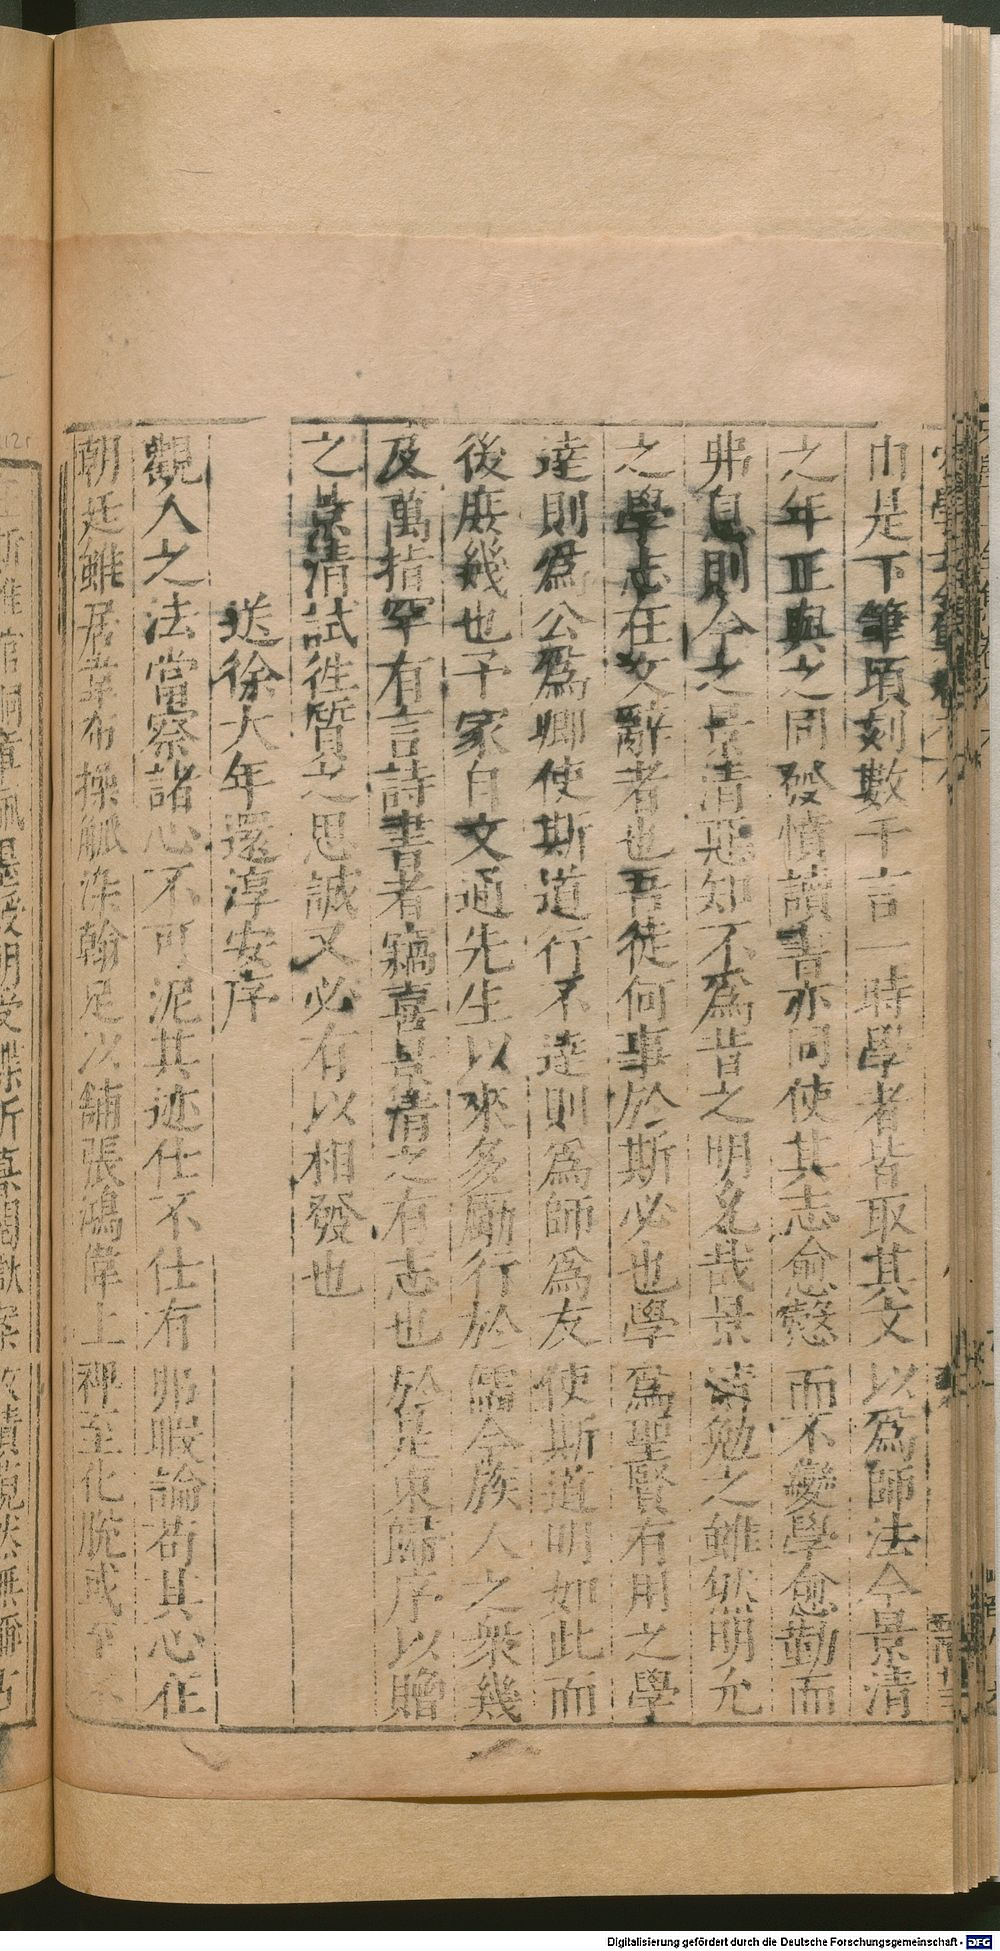 巾是下筆頃刻數千言一時學者皆取其文以爲師法今景清
之年正與之同發憤讀書亦同使其志愈慤而不變學愈勤而
弗息則今之景清惡知不爲昔之明允哉景清勉之雖然明允
之學志在文辭者也吾徒何事於斯必也學爲聖賢有用之學
達則爲公爲卿使斯道行不達則爲師爲友使斯道明如此而
後庶幾也予家自文通先生以來多勵行於儒今族人之衆幾
及萬指罕有言詩書者竊喜景清之有志也於是東歸序以贈
之景清試徃質之思誠又必有以相發也
送徐大年還淳安序
觀人之法當察諸心不可泥其迹仕不仕有弗暇論苟其心在
朝廷雖居韋布操觚染翰足以鋪張鴻偉上裨至化脫或不
Digitalisierung gefördert durch die Deutsche Forschungsgemeinschaft - DFG